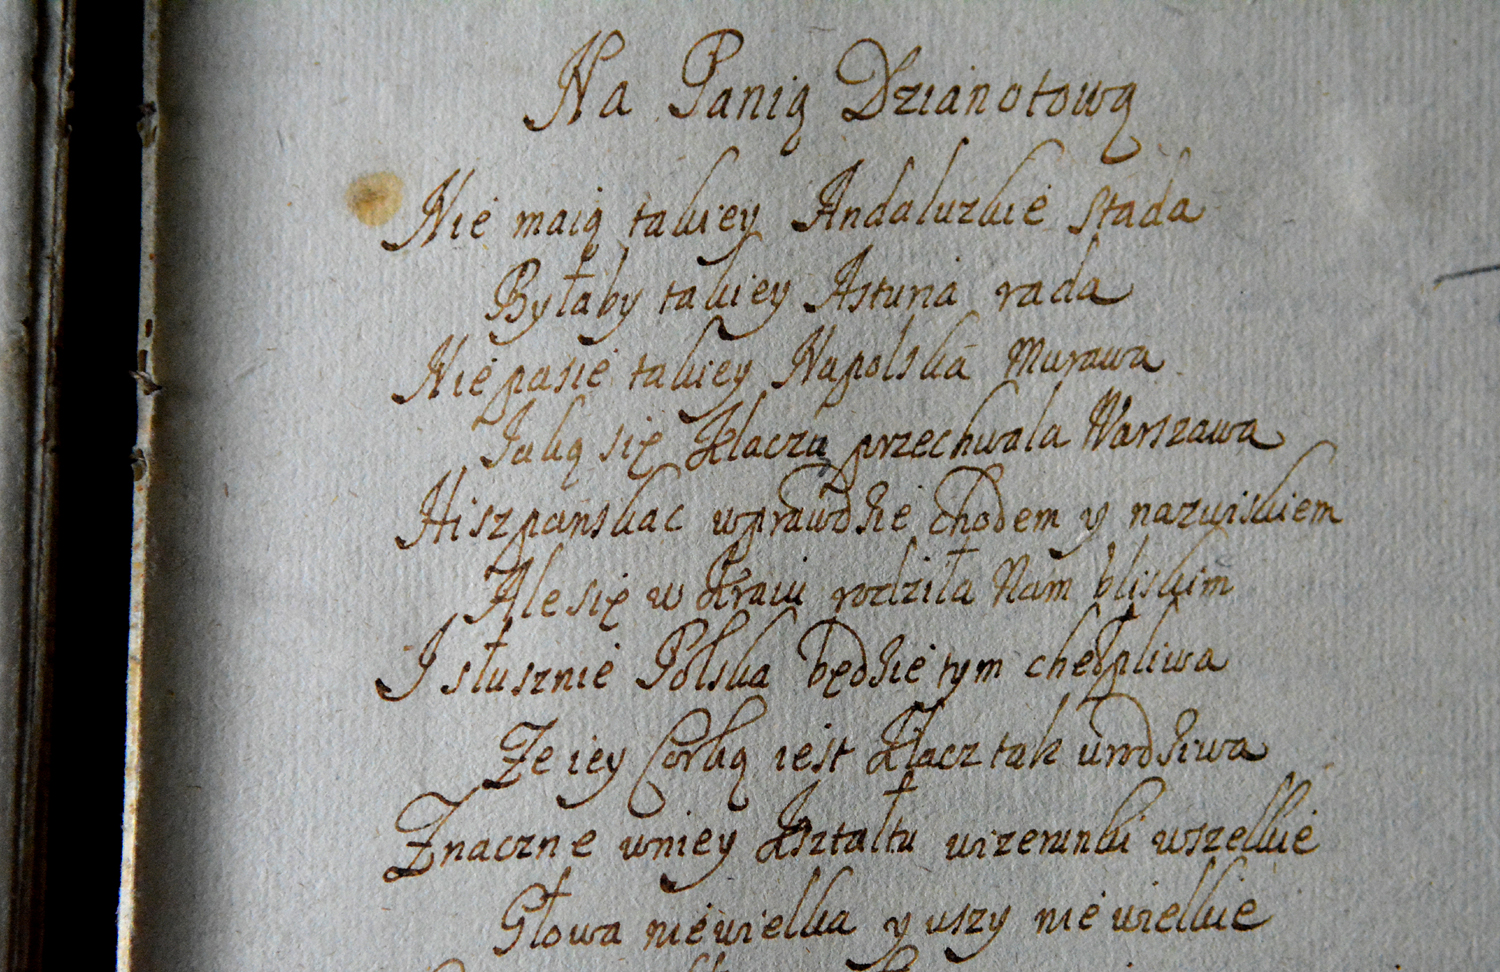 Na Panią Dzianotową
Nie maią takiey Andaluzkie stada
Byłaby takiey Asturia rada
Nie pasie takiey Napolska Murawa
Jaką się Klaczą przechwala Warszawa
Hiszpańskac wprawdzie chodem y nazwiskiem
Ale się w Kraiu rodziła Nam bliskim
I słusznie Polska będzie tym chełpliwa
Ze iey Corką iest Klacz tak urodziwa
Znaczne wniey Kształtu wizerunki wszelkie
Głowa niewielka y uszy nie wielkie